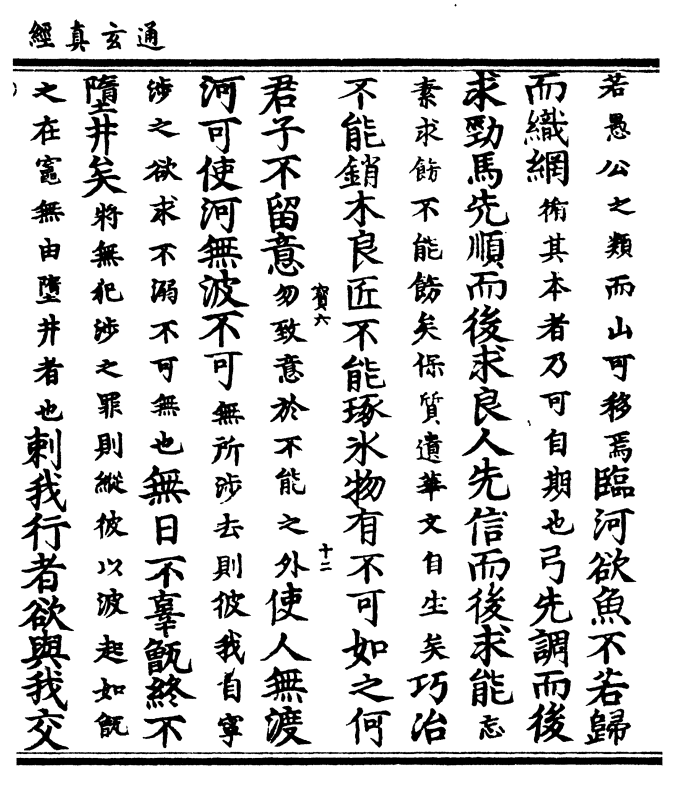 通玄真經
若愚公之類而山可移焉臨河欲魚不若歸
而織網術其本者乃可自期也弓先調而後
求勁馬先順而後求良人先信而後求能忘
素求飾不能飾矣保質遺華文自生矣巧冶
不能銷木良匠不能琢冰物有不可如之何
君子不留意勿致意於不能之外使人無渡
寶六
十二
河可使河無波不可無所涉去則彼我自寧
涉之欲求不溺不可無也無日不辜甑終不
墮井矣將無犯涉之罪則縱彼以波起如甑
之在竃無由墮井者也刺我行者欲與我交